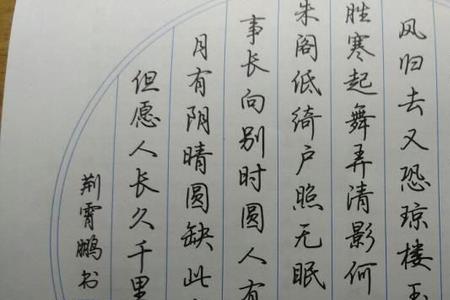 风归去又恐琼楼玉
胜寒起舞弄清影何
朱阁低绮户照无眠
事长向别时圆人有
月有阴晴圆缺此
但愿人长久千里
荆霄鹏书